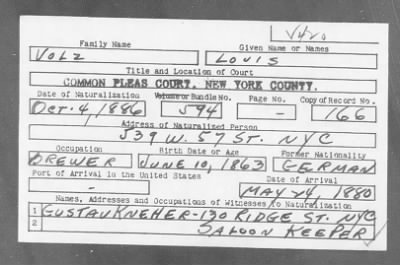 V420
Family Name Given Name or Names
VOLZ LOUIS
Title and Location of Court
COMMON PLEAS COURT, NEW YORK COUNTY.
Date of Naturalization Volume or Bundle No. Page No. Copy of Record No.
OCT. 4, 1886 594 - 166
Address of Naturalized Person
539 W. 57 ST. NYC
Occupation Birth Date or Age Former Nationality
BREWER JUNE 10, 1863 GERMAN
Port of Arrival in the United States Date of Arrival
- MAY 24, 1880
Names, Addresses and Occupations of Witnesses to Naturalization
1 GUSTAV KNEHER-130 RIDGE ST. NYC
2 SALOON KEEPER